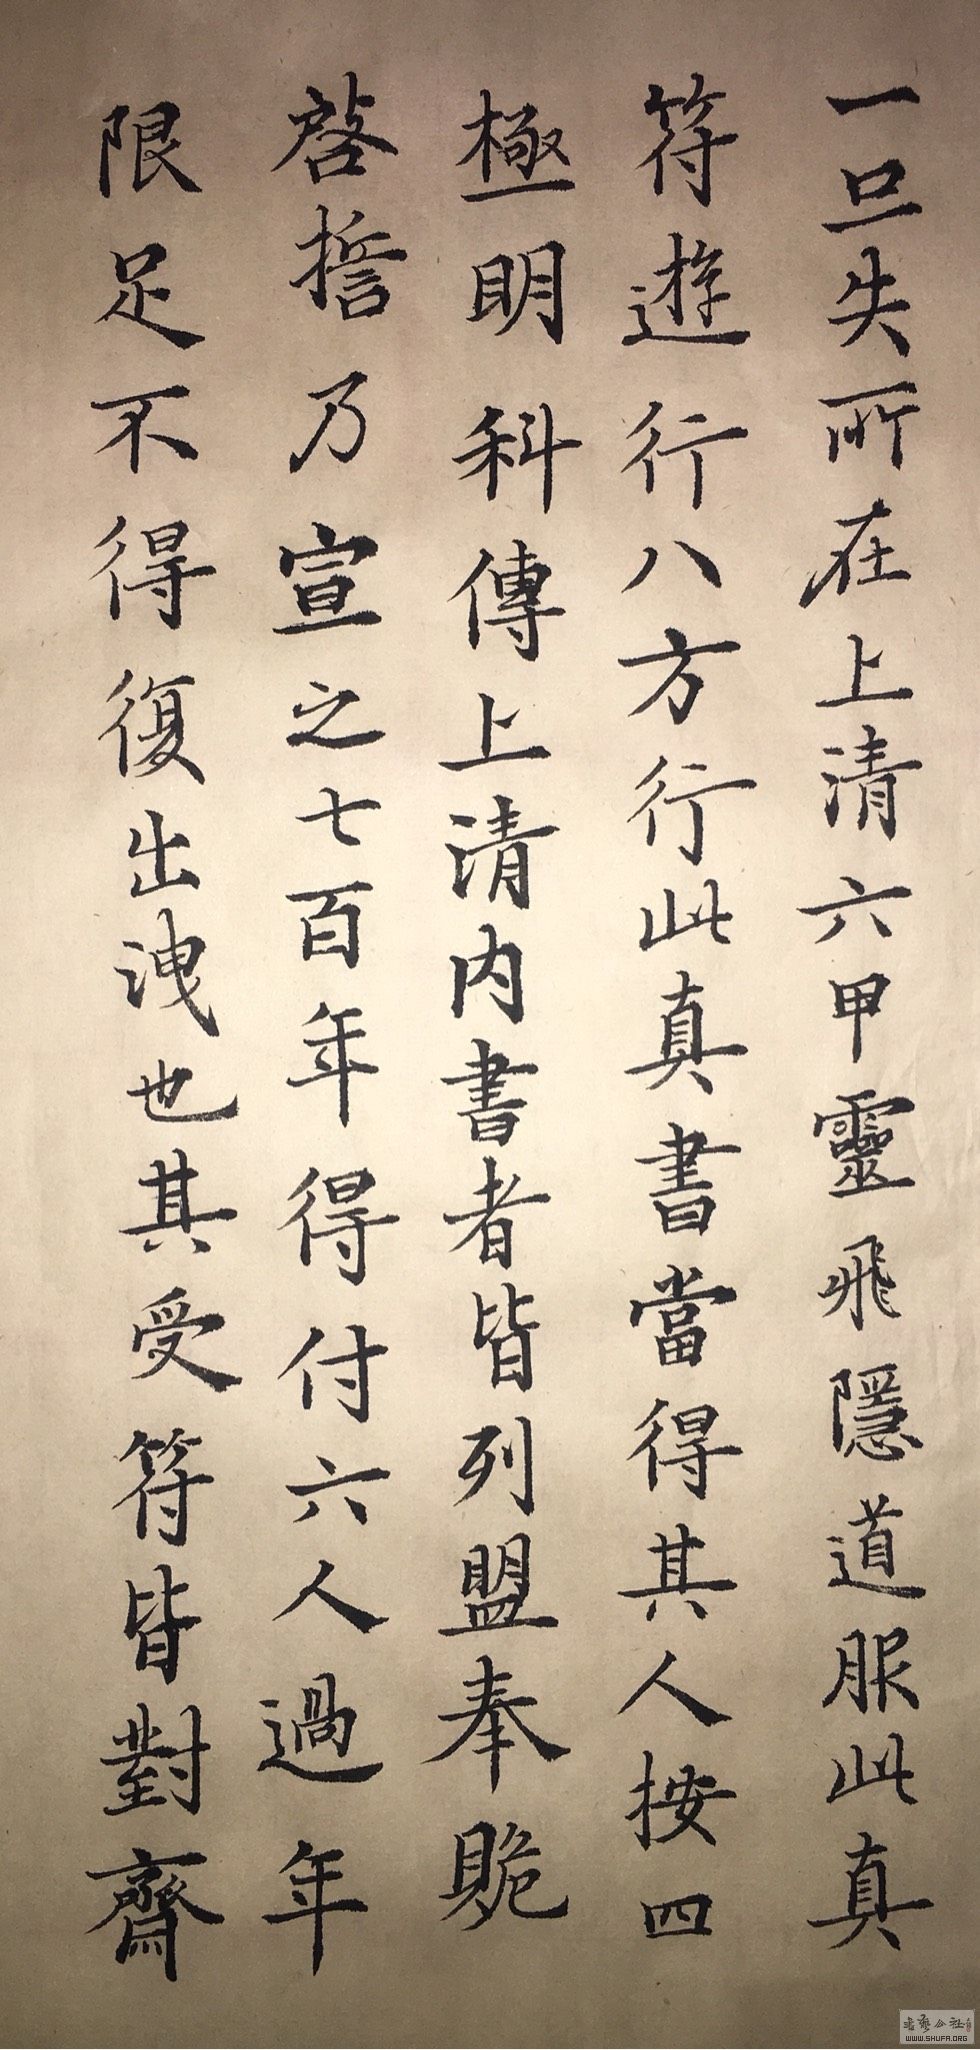 一旦失所在上清六甲靈飛隱道服此真
符遊行八方行此真書當得其人按四
極明科傳上清内書者皆列盟奉䞈
啓誓乃宣之七百年得付六人過年
限足不得復出洩也其受符皆對齋
書藝公社
WWW.SHUFA.ORG